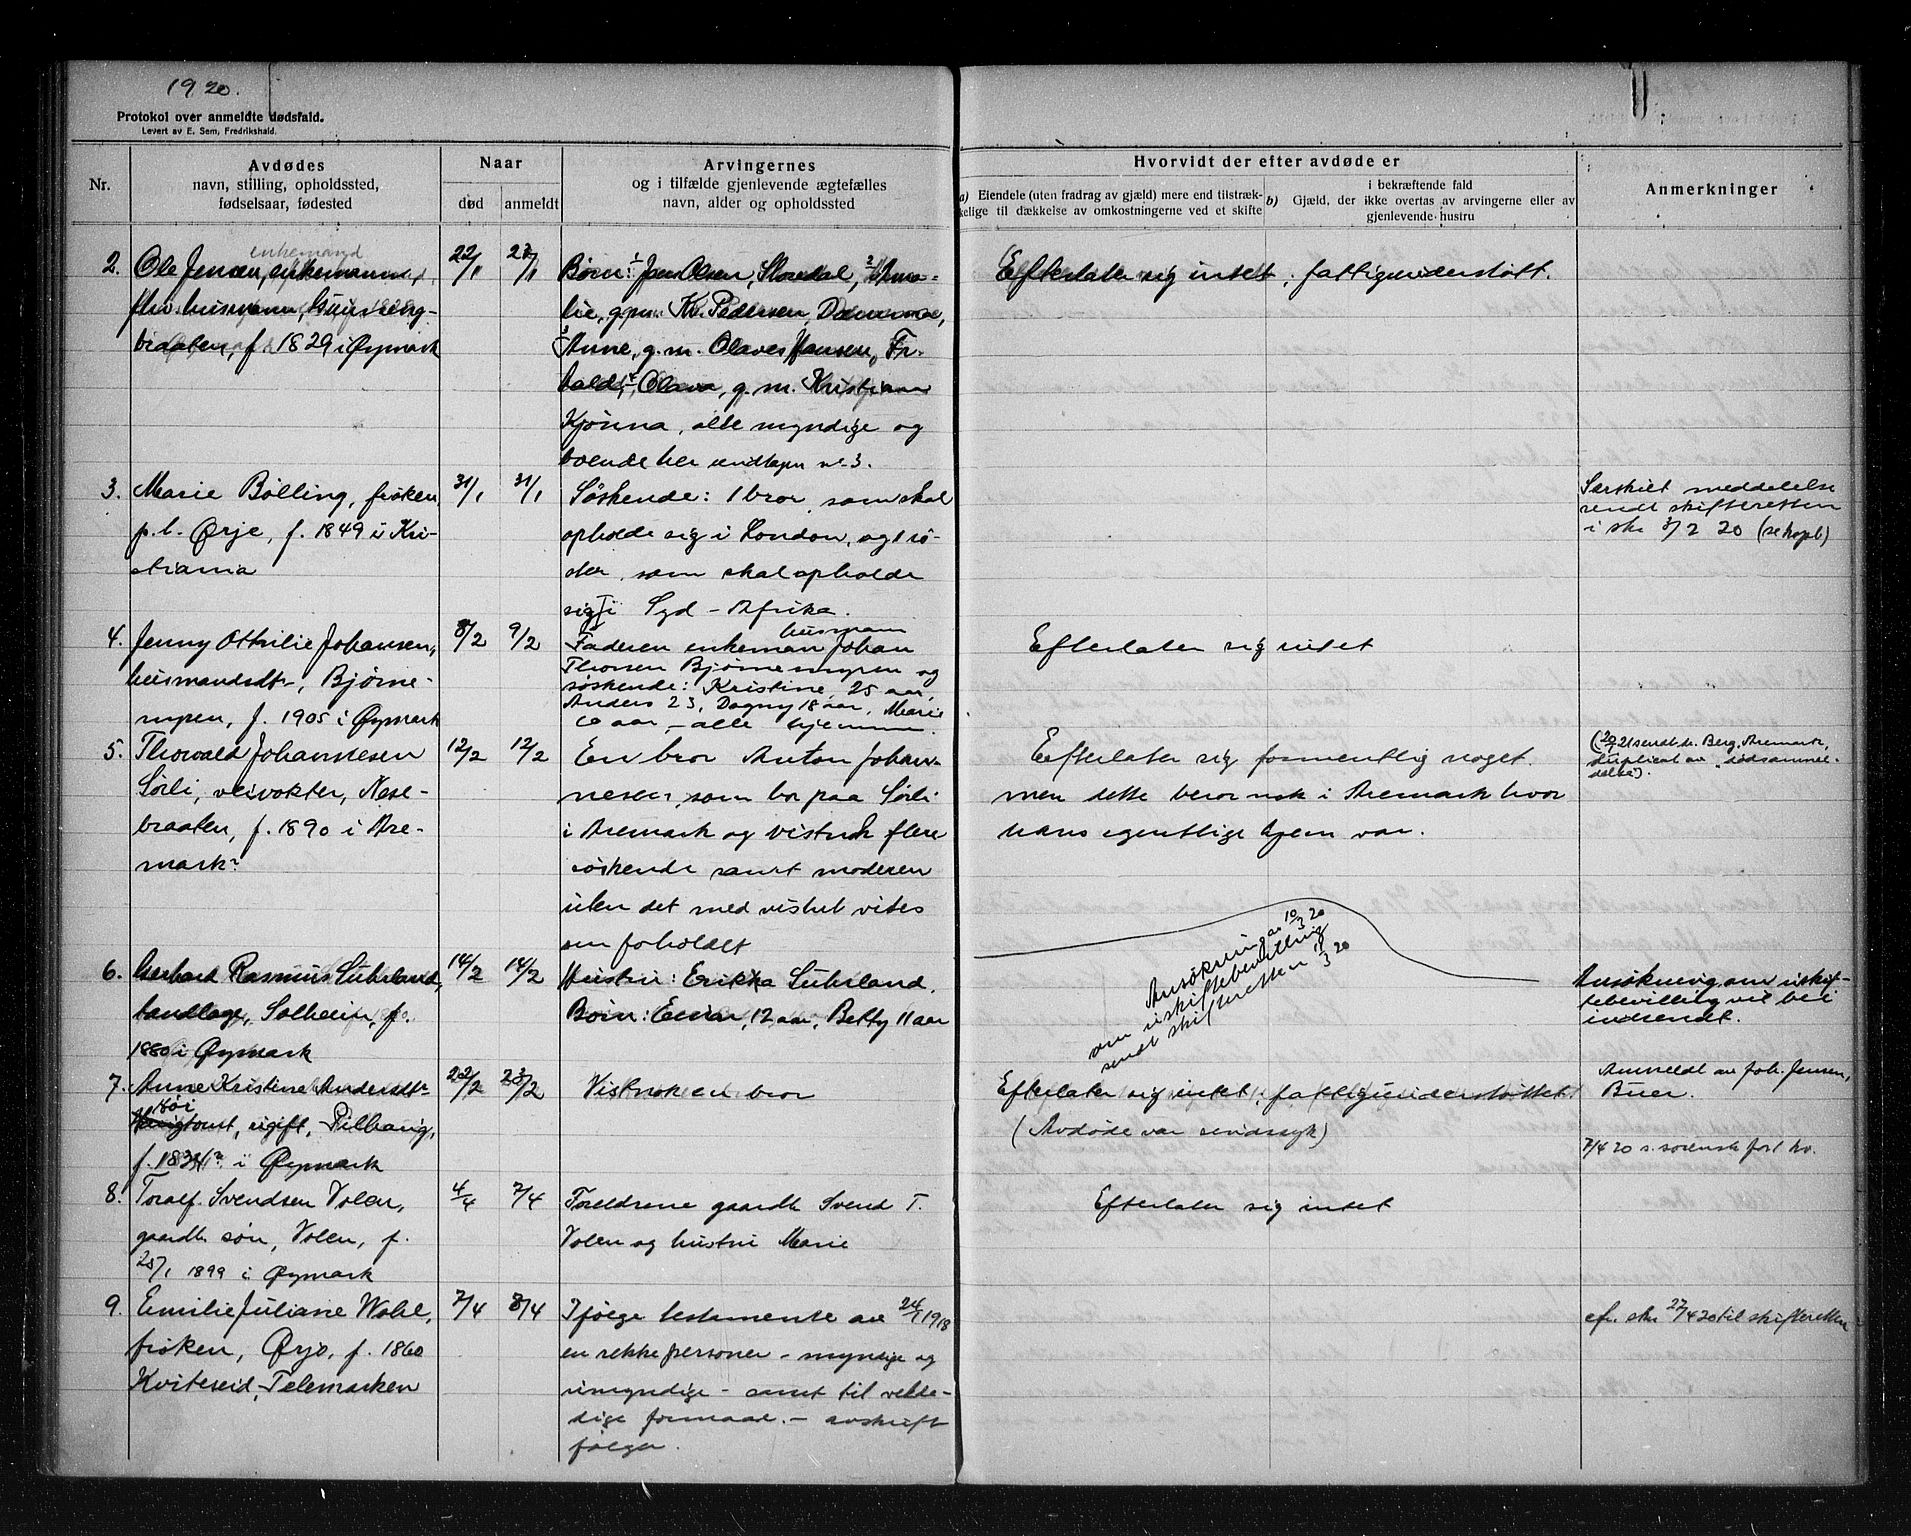 1920.
11
Protokol over anmeldte dødsfald.
Levert av E. Sem, Fredrikshald.
Nr.
Avdødes
navn, stilling, opholdssted,
fødselsaar, fødested
Naar
død
anmeldt
Arvingernes
og i tilfælde gjenlevende ægtefælles
navn, alder og opholdssted
Hvorvidt der efter avdøde er
a) Eiendele (uten fradrag av gjæld) mere end tilstræk-
kelige til dækkelse av omkostningerne ved et skifte
i bekræftende fald
b) Gjæld, der ikke overtas av arvingerne eller av
gjenlevende hustru
Anmerkninger
enkemand
2. Ole Jensen, enkemann,
fhv. husmann,
braaten, f. 1829 i Øymark
22/1
Børn: 1 Jens Olsen, Stordal, 2 Ama-
lie, g.m. Kr. Pedersen,
3 Anne, g.m. Olaves Hansen, Fr.
hald, 4 Olava, g.m. Kristian
Kjønna, alle myndige og
boende her undtagen nr. 3.
Efterlater sig intet, fattigunderstøtt.
3. Marie Bølling, frøken,
p.t. Ørje, f. 1849 i Kri-
stiania
31/1
31/1
Søskende: 1 bror, som skal
opholde sig i London, og 1 sø-
ster, som skal opholde
sig i Syd-Afrika.
Særskilt meddelelse
sendt skifteretten
i skr. 3/2 20 (se kopb)
4. Jenny Othilie Johansen,
husmandsdtr, Bjørne-
myren, f. 1905 i Øymark
8/2
9/2
husmann
Faderen enkeman Johan
Thorsen Bjørnemyren og
søskende: Kristine, 25 aar,
Anders 23, Dagny 18 aar, Marie
6 aar, - alle hjemme.
Efterlater sig intet
5. Thorvald Johannesen
Sørli, veivokter, Nese-
braaten, f. 1890 i Are-
mark?
12/2
12/2
En bror Anton Johan-
nesen, som bor paa Sørli
i Aremark og vistnok flere
søskende samt moderen
uten det med vished vites
om forholdet
Efterlater sig formentlig noget.
men dette beror nok i Aremark hvor
hans egentlige hjem var.
21 sendt l. Berg, Aremark,
duplicat av dødsanmel-
delse).
6. Gerhard Rasmus Suhrland,
landhage, Solheim, f.
1880 i Øymark
14/2
14/2
Hustru: Erikka Suhrland.
Børn: Einar, 12 aar, Betty 11 aar
Ansøkning av 10/3 20
om uskiftebevilling
sendt skifteretten 11/3 20
Ansøkning om uskif-
tebevilling vil bli
indsendt.
7. Anne Kristine Andersdtr
Høi
ugift, Pilhaug,
f. 1834? i Øymark
22/2
23/2
Vistnok en bror
Efterlater sig intet, fattigunderstøttet
(Avdøde var sindssyk)
Anmeldt av Joh. Jensen,
Buer.
7/4 20 s. sorensk fort hv.
8. Toralf Svendsen Volen,
gaardbr. søn, Volen, f.
25/1 1899 i Øymark
4/4
7/4
Foreldrene gaardb Svend T.
Volen og hustru Marie
Efterlater sig intet
9. Emilie Juliane Wohl,
frøken, Ørje, f. 1860
Kviteseid, Telemarken
7/4
8/4
Ifølge testamente av 24/1 1918
en rekke personer - myndige og
umyndige - samt til velde-
dige formaal. - avskrift
følger.
cfr. skr 27/4 20 til skifteretten